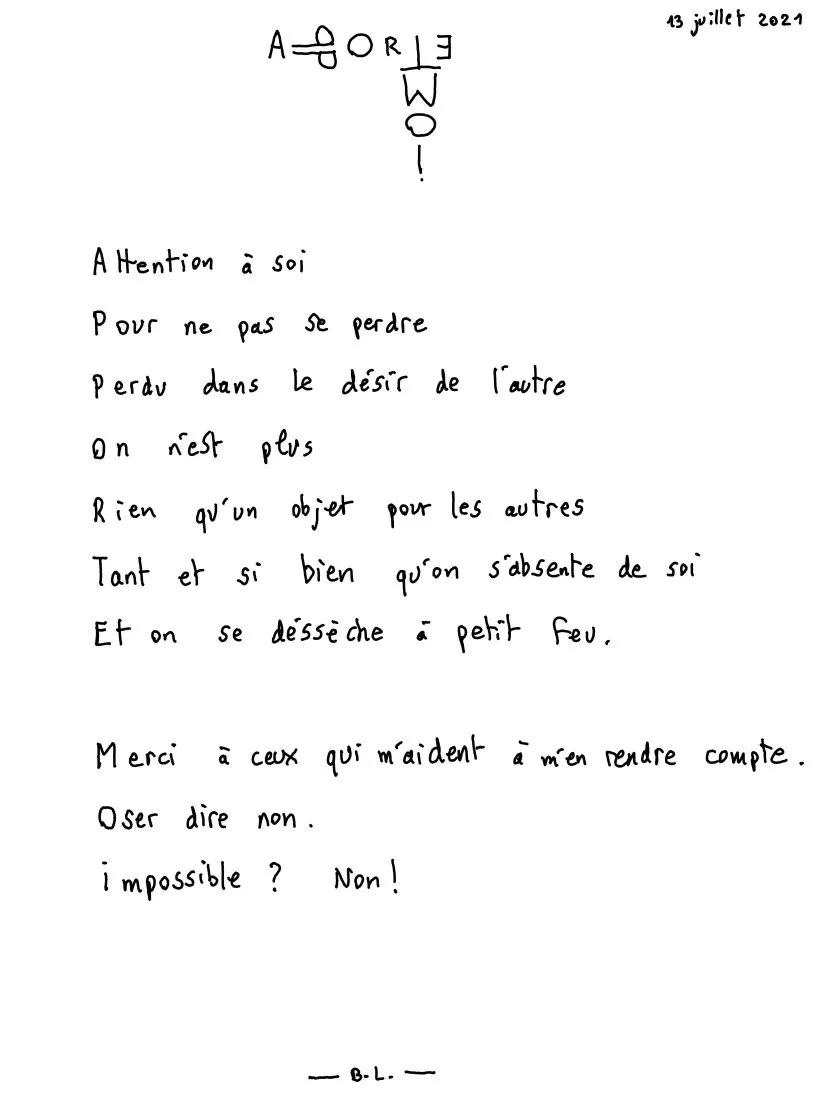 13 juillet 2021
APPORTE
MOI
Attention à soi
Pour ne pas se perdre
Perdu dans le désir de l'autre
On n'est plus
Rien qu'un objet pour les autres
Tant et si bien qu'on s'absente de soi
Et on se déssèche à petit feu.
Merci à ceux qui m'aident à m'en rendre compte.
Oser dire non.
impossible ? Non !
— B.L. —